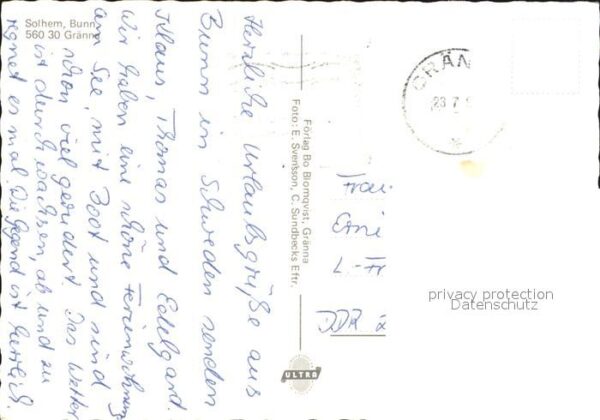 Solhem, Bunn
560 30 Gränna
Herzliche Urlaubsgrüße aus
Bunn in Schweden senden
Klaus, Thomas und Edelgard.
Wir haben eine schöne Ferienwohnung
am See, mit Boot und sind
schon viel gerudert. Das Wetter
ist durchwachsen, ab und zu
regnet es mal. Die Gegend ist herrlich.
Förlag Bo Blomqvist, Gränna
Foto: E. Svensson, C. Sundbecks Eftr.
ULTRA
GRÄN
23 7
Frau
Erni
L.-Fr
DDR
privacy protection
Datenschutz